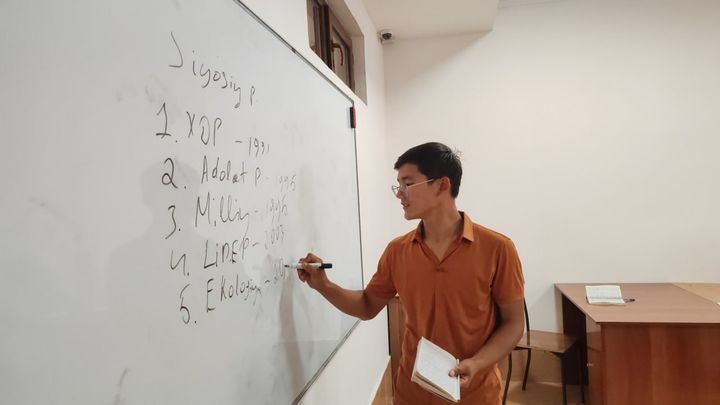 Siyosiy p.
1. XDP - 1991
2. Adolat p - 1995
3. Milliy - 1995
4. LiDEP - 2003
5. Ekologiya -